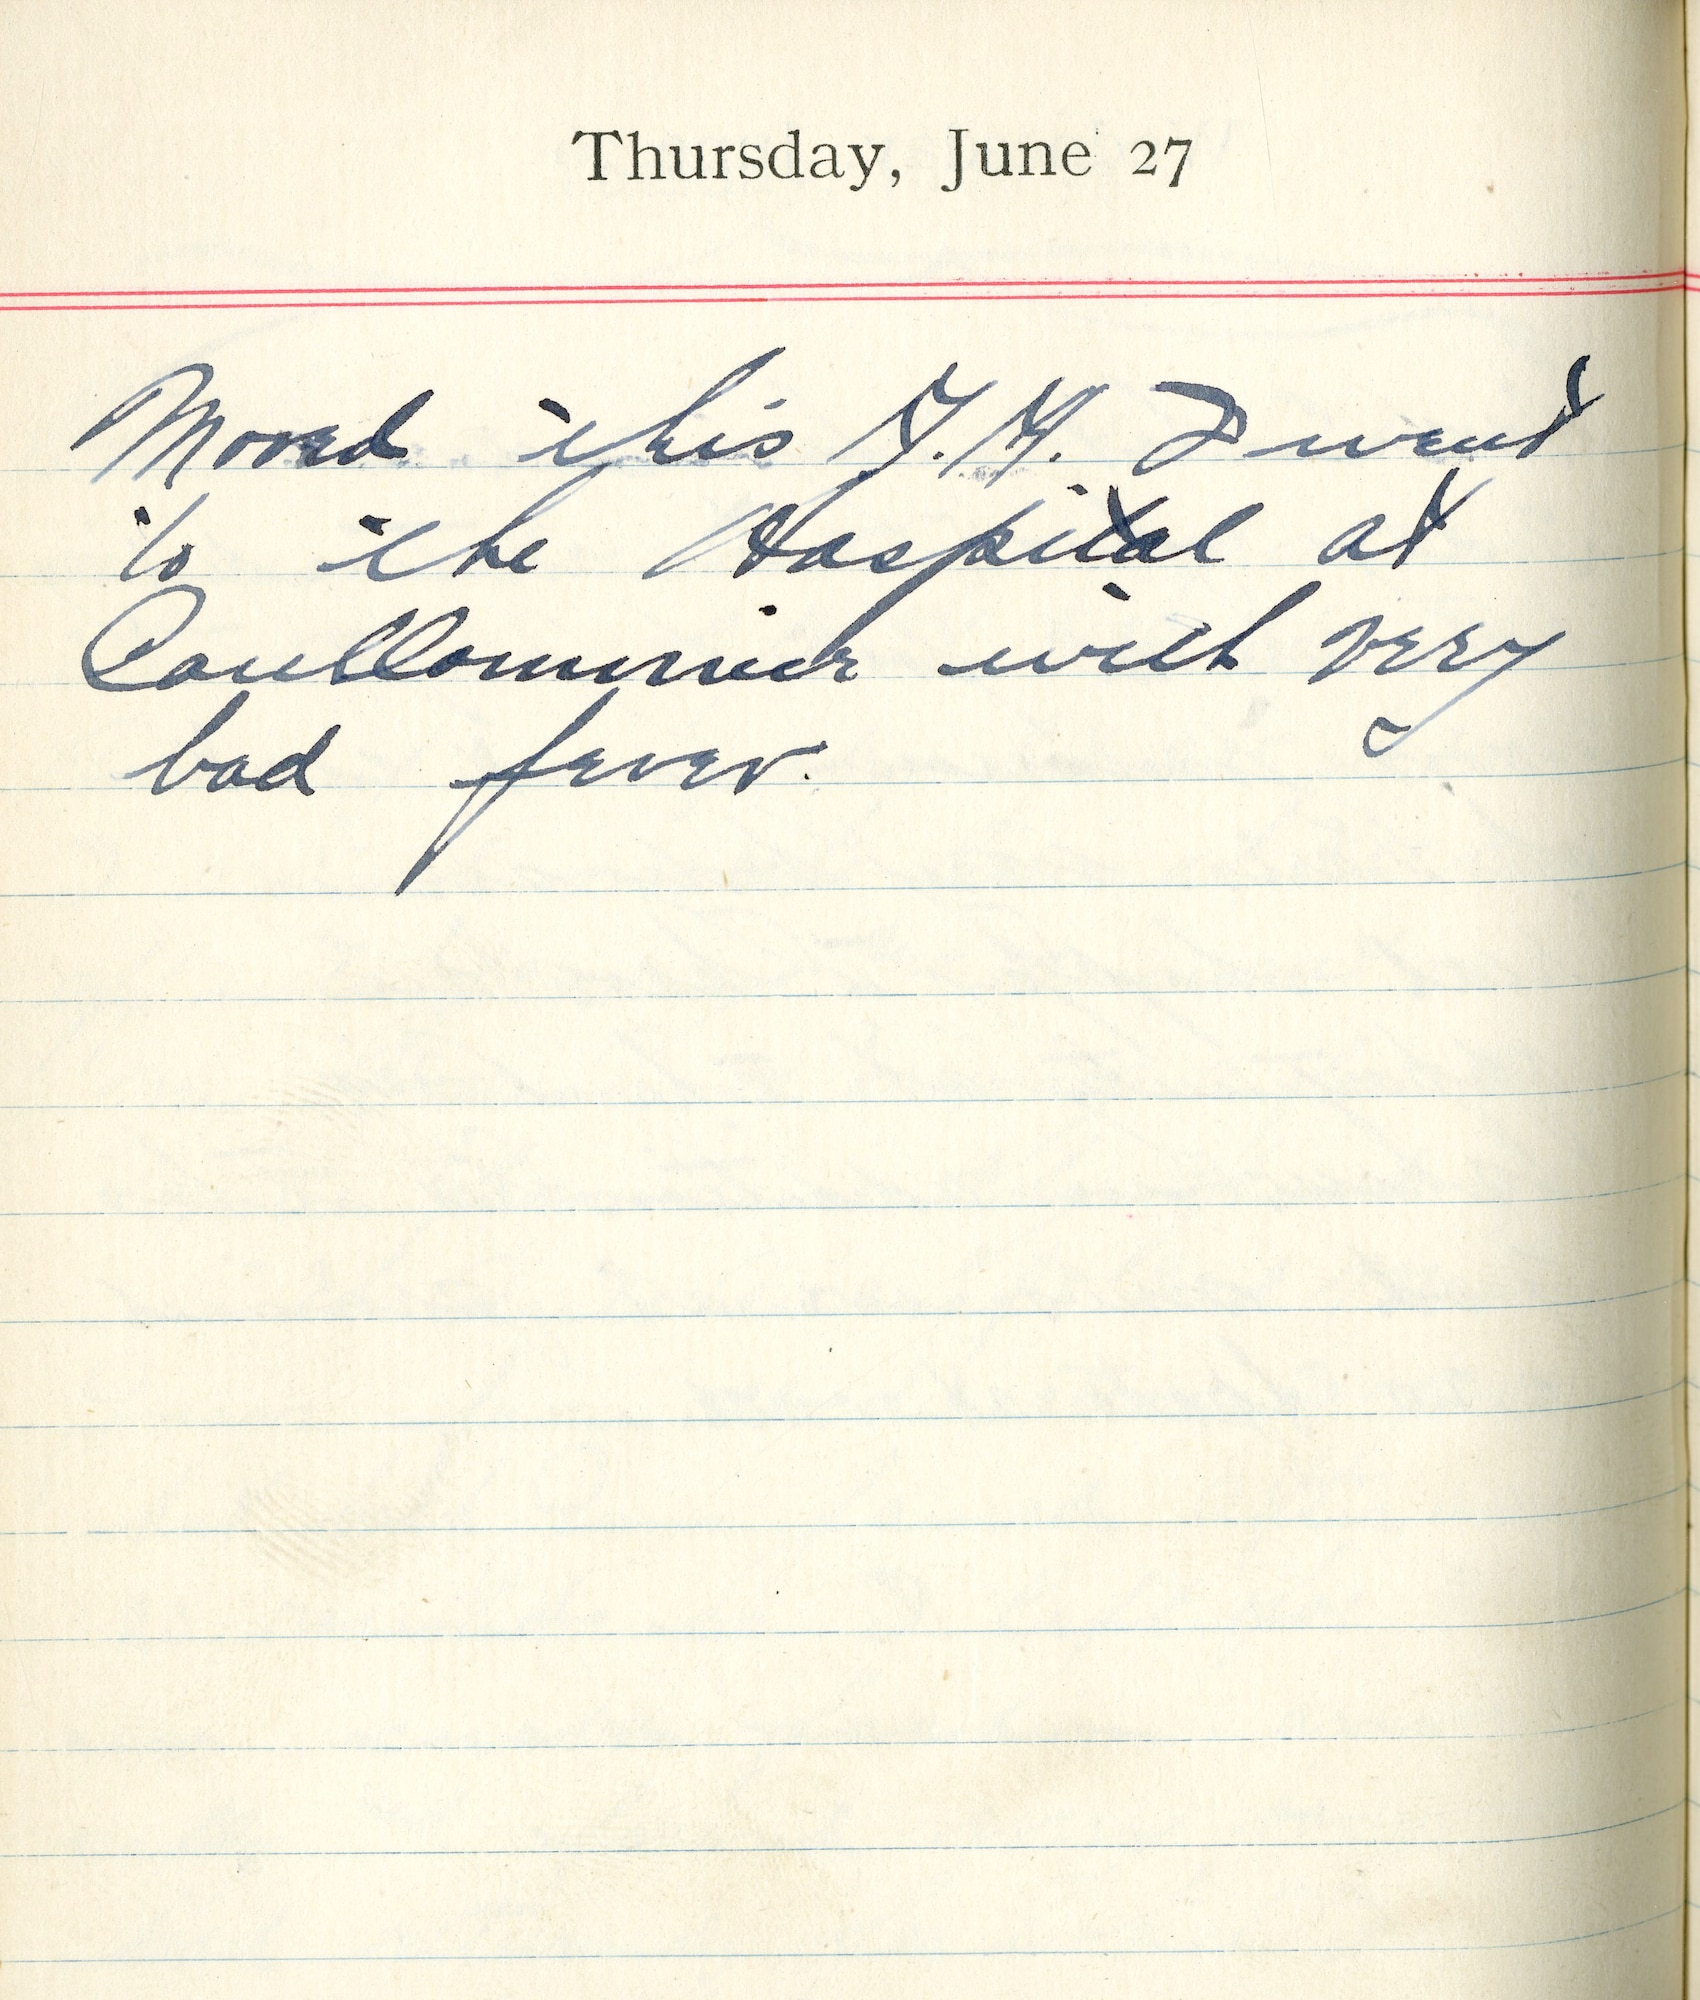 Thursday, June 27
Moved this I went
to the Hospital at
Coullommier with very
bad fever.